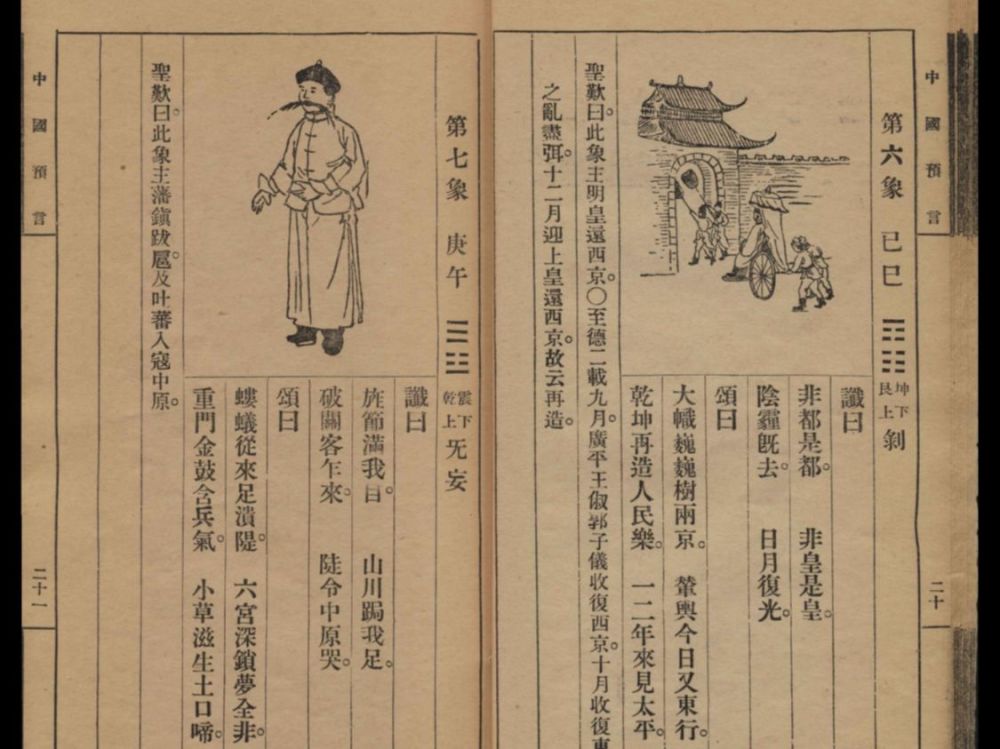 中國預言
二十
第六象 己巳 ䷖ 坤下艮上 剝
讖曰
非都是都。 非皇是皇。
陰霾旣去。 日月復光。
頌曰
大幟巍巍樹兩京。 輦輿今日又東行。
乾坤再造人民樂。 一二年來見太平。
聖歎曰。此象主明皇還西京。〇至德二載九月。廣平王俶郭子儀收復西京。十月收復東
之亂盡弭。十二月迎上皇還西京。故云再造。
第七象 庚午 ䷘ 震下乾上 旡妄
讖曰
旌節滿我目。 山川跼我足。
破關客乍來。 陡令中原哭。
頌曰
螻蟻從來足潰隄。 六宮深鎖夢全非。
重門金鼓含兵氣。 小草滋生土口啼。
聖歎曰。此象主藩鎭跋扈。及吐蕃入寇中原。
中國預言
二十一